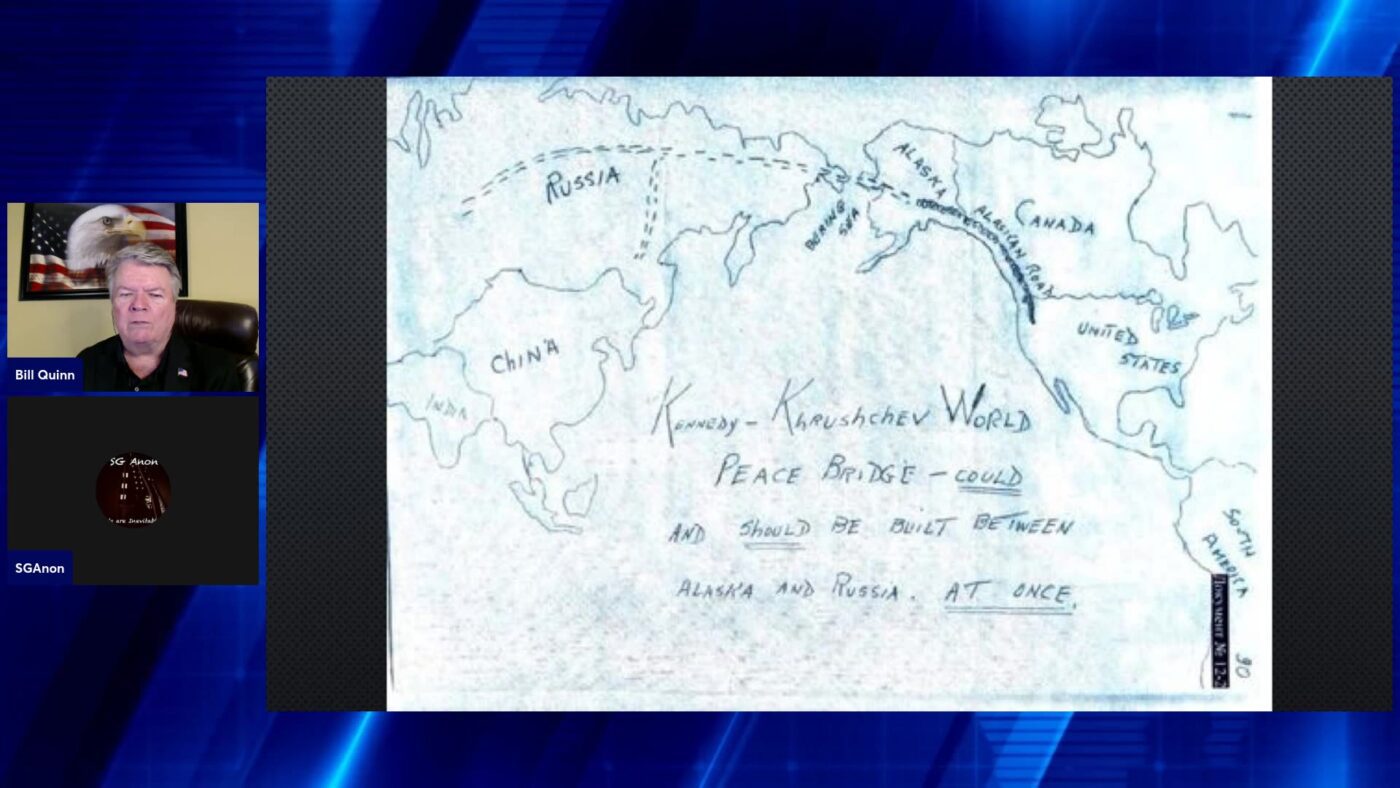 Bill Quinn
SG Anon
SGAnon
RUSSIA
ALASKA
BERING
SEA
ALASKAN ROAD
CANADA
UNITED
STATES
CHINA
INDIA
SOUTH
AMERICA
KENNEDY – KHRUSHCHEV WORLD
PEACE BRIDGE – COULD
AND SHOULD BE BUILT BETWEEN
ALASKA AND RUSSIA. AT ONCE.
Документ № 12-2
90